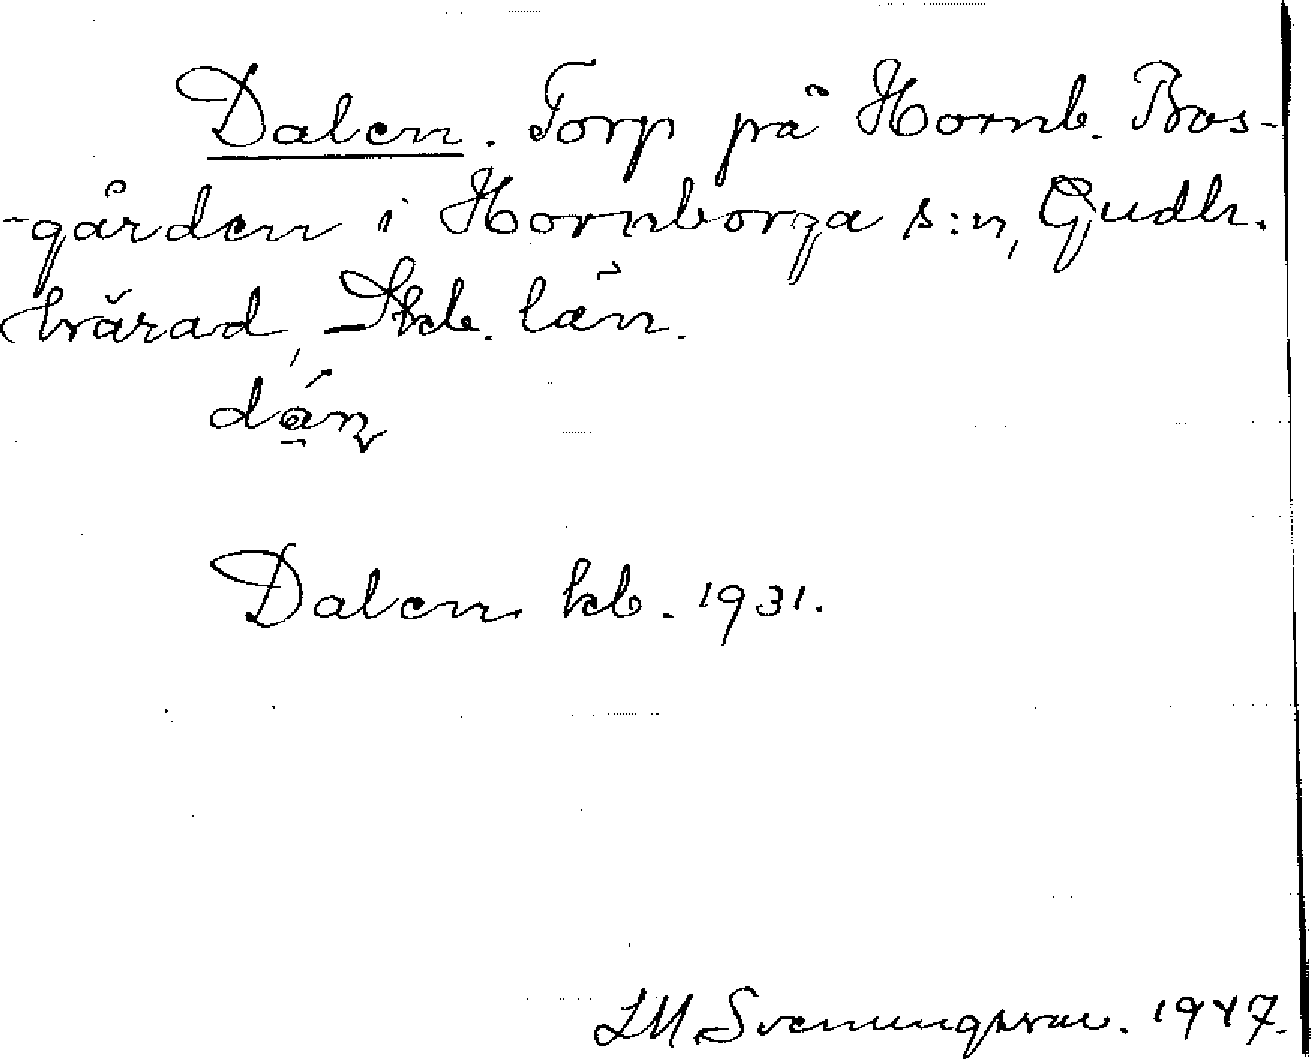 Dalen. Torp på Hornb. Bos-
-gården i Hornborga s:n, Gudh.
härad, Skb. län.
Dalen kb. 1931.
LM Svenungsson. 1947.